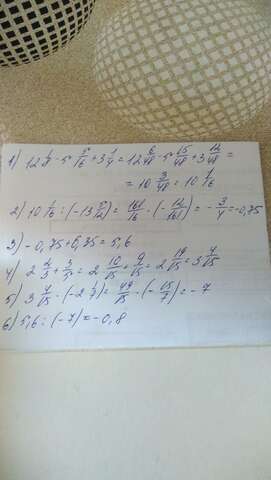 1) 12 1/8 - 5 5/16 + 3 1/4 = 12 6/48 - 5 15/48 + 3 12/48 =
= 10 3/48 = 10 1/16
2) 10 1/16 : (-13 5/12) = 161/16 · (-12/161) = -3/4 = -0,75
3) -0,75+6,35=5,6
4) 2 2/3 + 3/5 = 2 10/15 + 9/15 = 2 19/15 = 3 4/15
5) 3 4/15 · (-2 1/7) = 49/15 · (-15/7) = -7
6) 5,6 : (-7) = -0,8